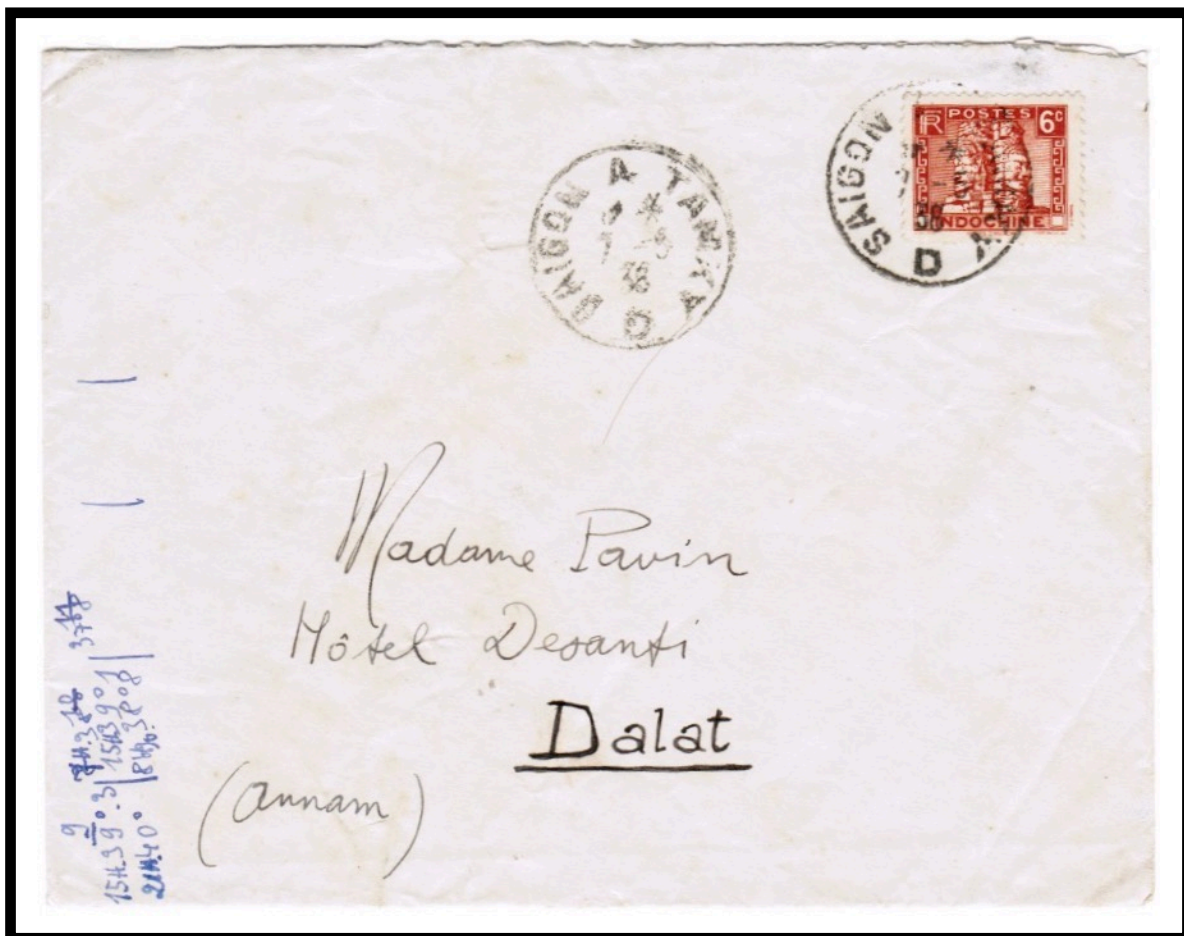 RF POSTES 6c
INDOCHINE
SAIGON
38
D
SAIGON A TAMKY
38
D
Madame Pavin
Hôtel Desanti
Dalat
(Annam)
9
15H.39°.3 | 15H39°1
21H.40° | 8H30.38°8 |